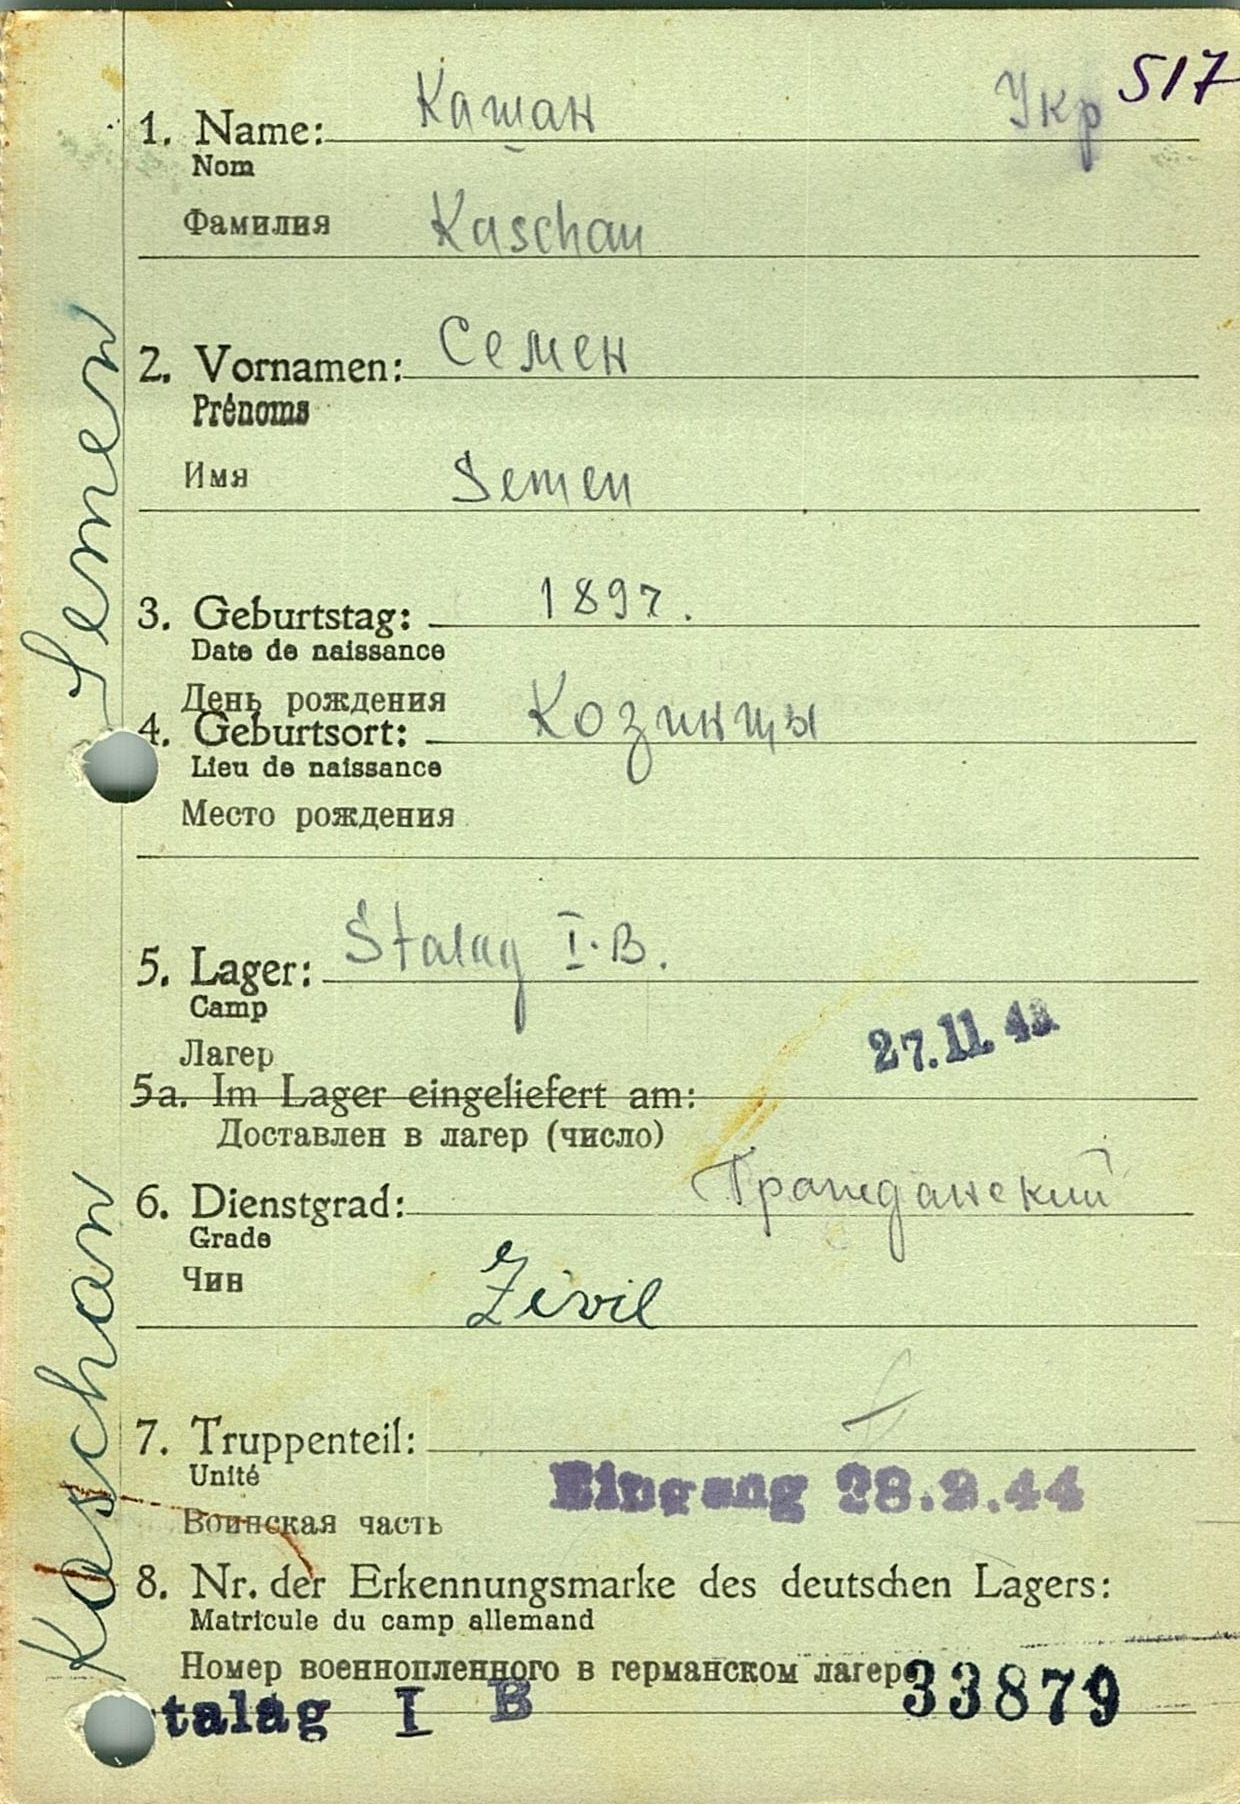 517
Кашан Укр
1. Name:
Nom
Фамилия Kaschan
Семен
2. Vornamen:
Prénoms
Имя Semen
1897.
3. Geburtstag:
Date de naissance
День рождения
4. Geburtsort: Козинцы
Lieu de naissance
Место рождения
Stalag I.B.
5. Lager:
Camp
Лагер
27.11.
5a. Im Lager eingeliefert am:
Доставлен в лагер (число)
Гражданский
6. Dienstgrad:
Grade
Чин
Zivil
7. Truppenteil:
Unité
Eingang 28.2.44
Воинская часть
8. Nr. der Erkennungsmarke des deutschen Lagers:
Matricule du camp allemand
Номер военнопленного в германском лагере
33879
talag I B
Kaschan Semen